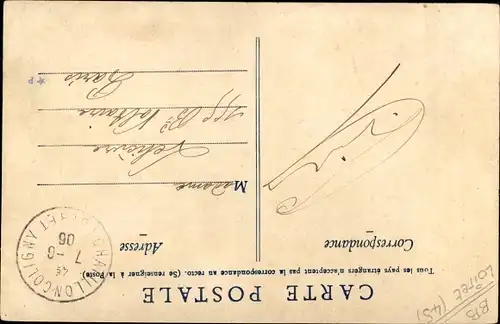 CARTE POSTALE
Tous les pays étrangers n'acceptent pas la correspondance au recto. (Se renseigner à la Poste)
Correspondance
Adresse
Madame
155 Bd Voltaire
Paris
CHAILLON-COLIGNY
LOIRET
7-6
45
06
BB
Loiret (45)